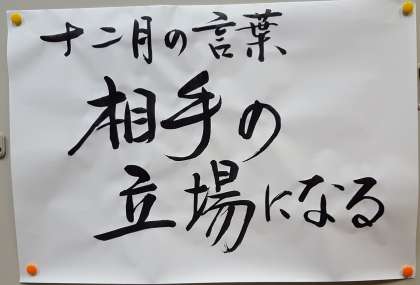 十二月の言葉
相手の
立場になる